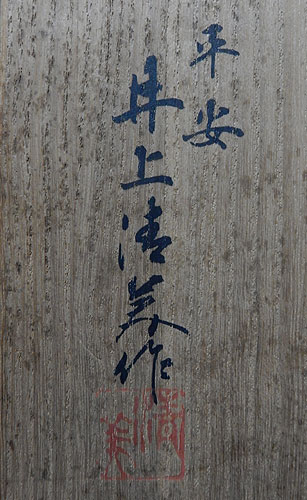 平安
井上清美作